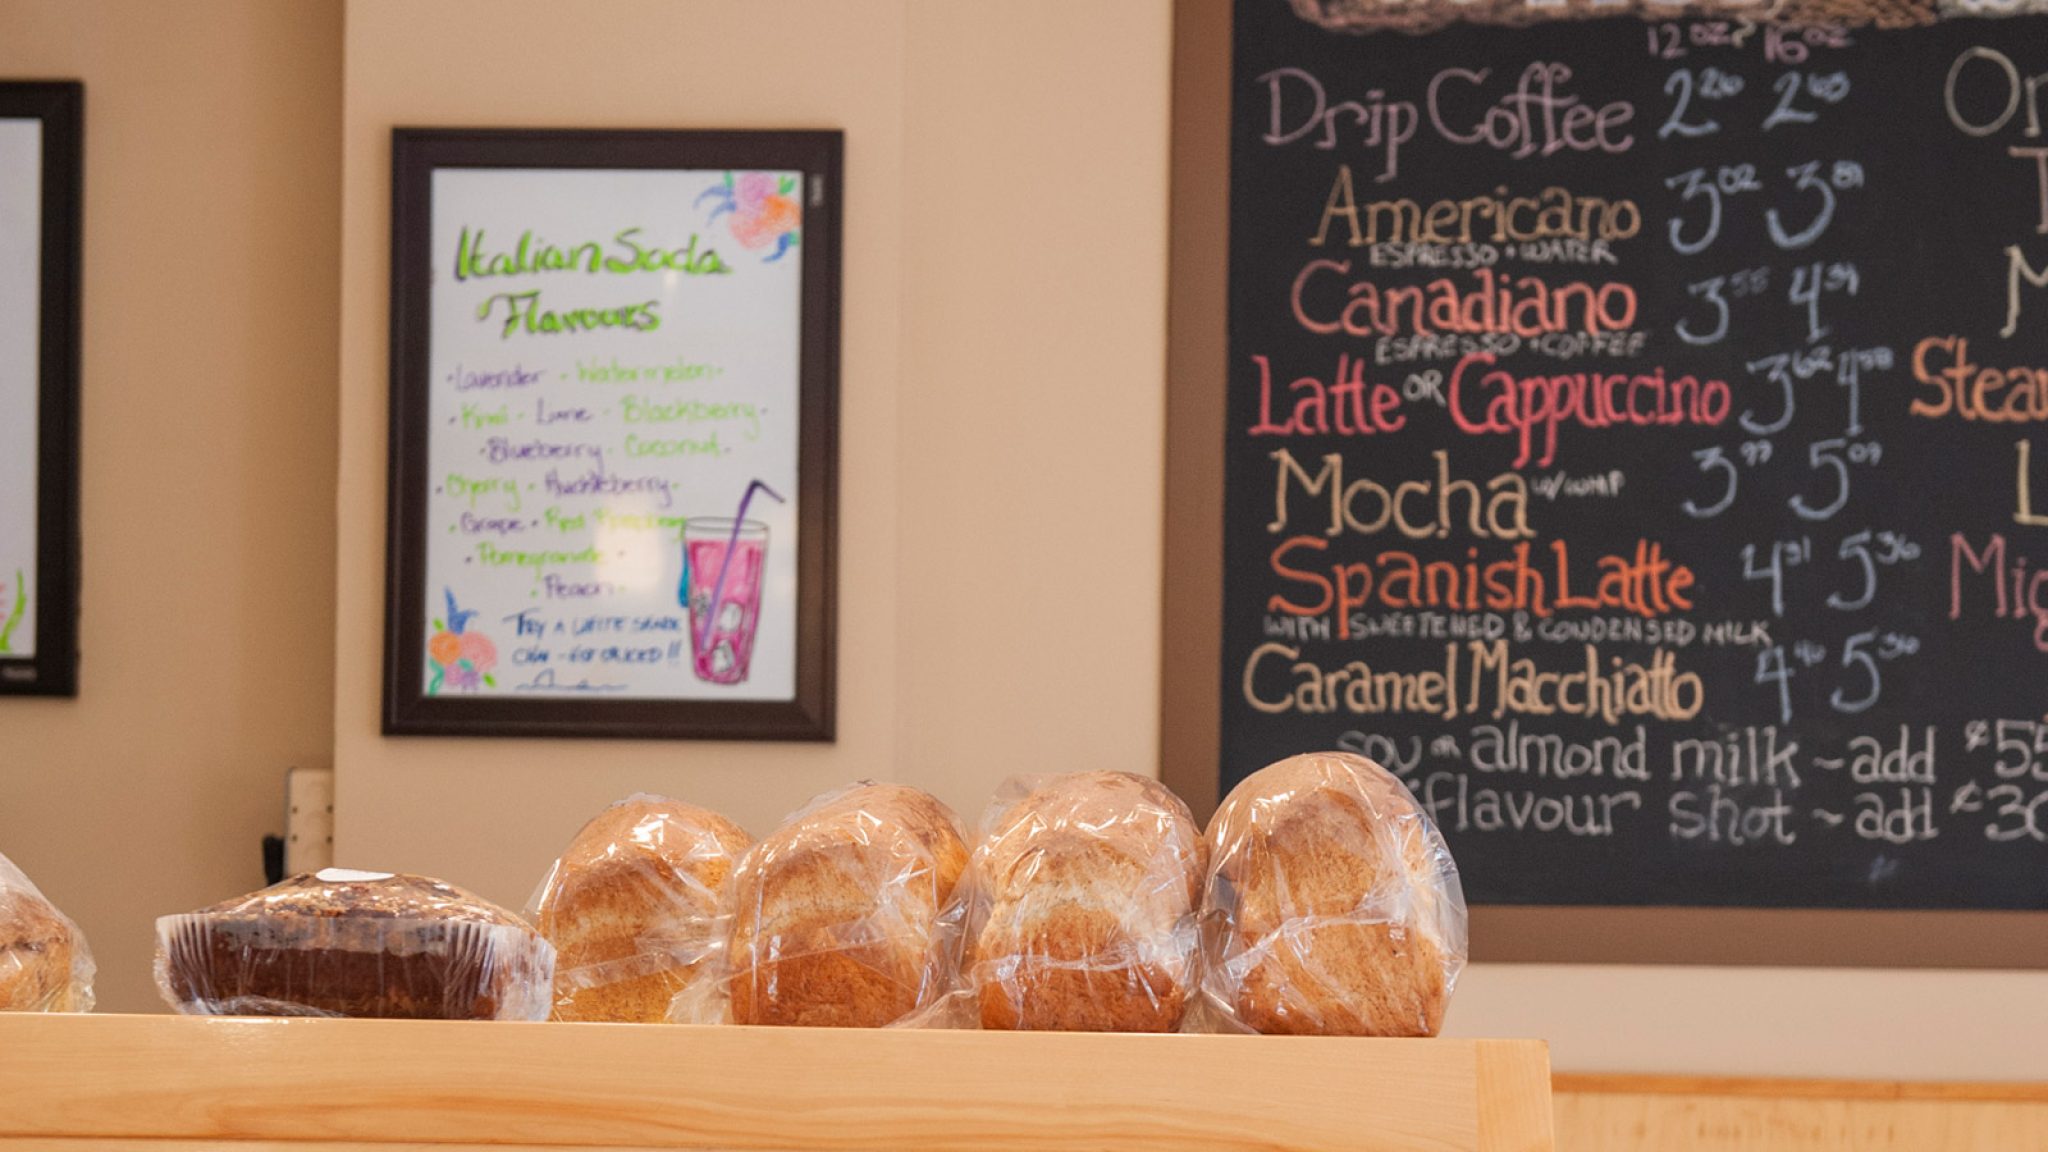 Italian Soda
Flavours
• Lavender - Watermelon -
- Kiwi - Lime - Blackberry -
- Blueberry - Coconut -
- Cherry - Huckleberry -
- Grape - Red Raspberry
- Pomegranate -
- Peach -
TRY A
12 oz 16 oz
Drip Coffee 2 26 2 65
Americano 3 02 3 89
ESPRESSO + WATER
Canadiano 3 55 4 39
ESPRESSO + COFFEE
Latte OR Cappuccino 3 62 4 58
Mocha w/ WHIP 3 99 5 09
Spanish Latte 4 31 5 36
WITH SWEETENED & CONDENSED MILK
Caramel Macchiatto 4 46 5 36
soy or almond milk ~ add ¢55
flavour shot ~ add ¢30
Stea